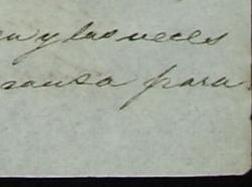 y las veces
causa para